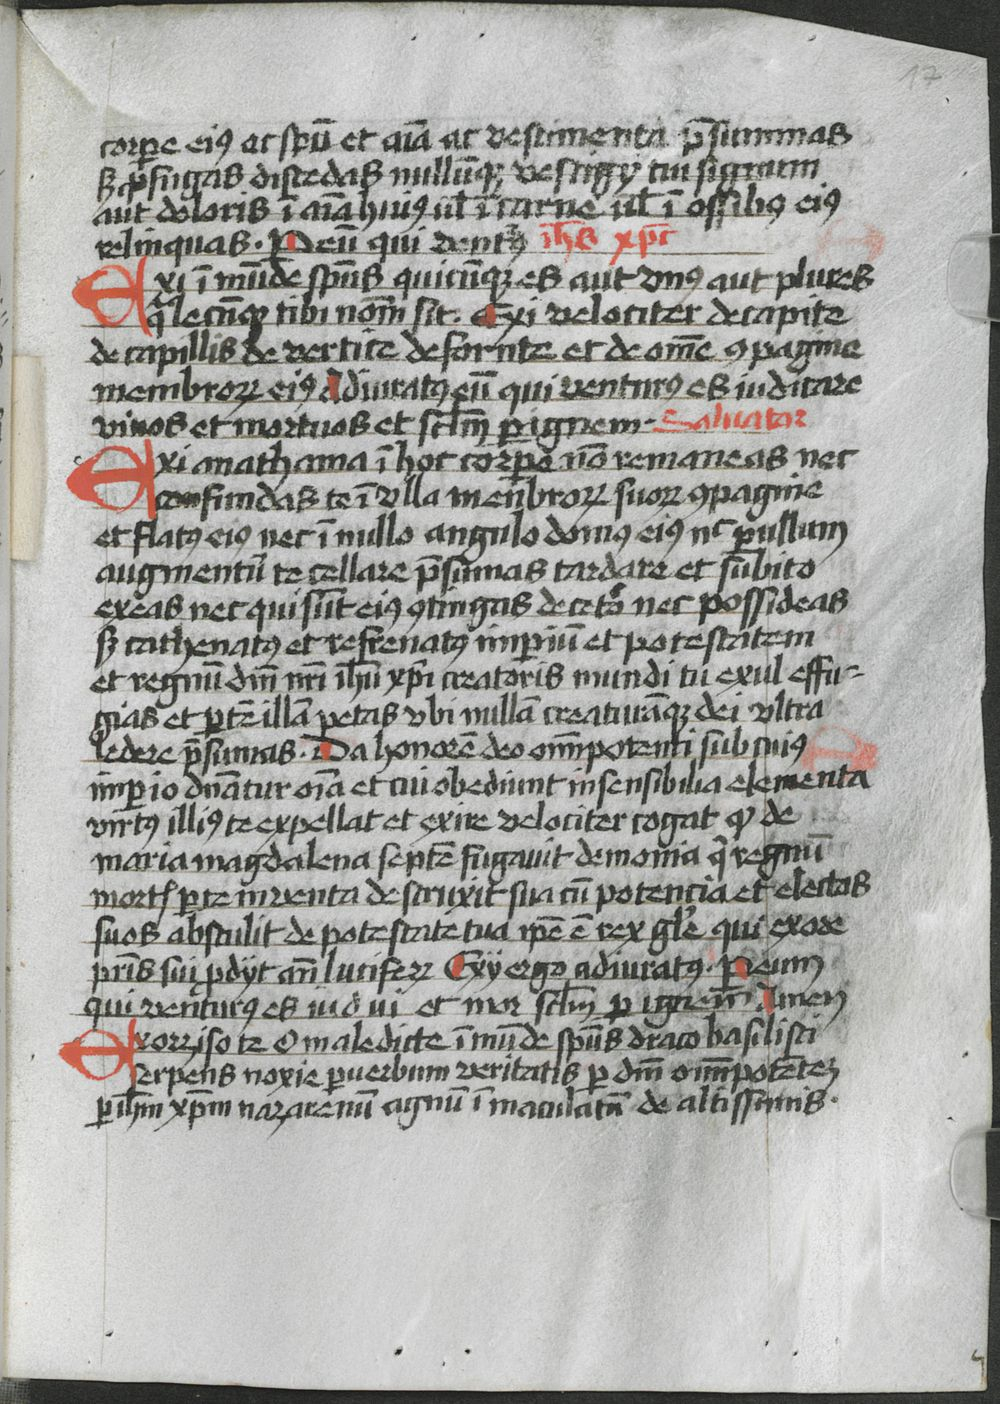 17
corpe eiꝯ ac spū et aīa ac vestimenta p̄sumas
sꝫ ꝓfugas discedas nullūqꝫ vestigÿ tui signum
aut doloris ī aīa huiꝯ ul̄ ī carne ul̄ ī ossibꝯ eiꝯ
relinquas · P eū qui ventꝯ ih̄s xp̄c
Exi īmūde spūs quicūqꝫ es aut vnꝯ aut plures
q̄lecūqꝫ tibi nōm sit. Exi velociter de capite
de capillis de vertice de fornte et de om̄e ꝯpagine
membroꝝ eiꝯ Adiuratꝯ p eū qui venturꝯ es iudicare
viuos et mortuos et sclm̄ p ignem · Saluator
Exi anathama ī hoc corpe nō remaneas nec
confundas te ī vlla menbroꝝ suoꝝ ꝯpagine
et flatꝯ eiꝯ nec ī nullo angulo domꝯ eiꝯ nc̄ p ullum
augmentū te cellare p̄sumas tardare et sūbito
exeas nec qui sūt eiꝯ ꝯtingas de ceto nec possideas
sꝫ cathenatꝯ et refrenatꝯ imperiū et potestatem
et regnū dm̄ nr̄i ih̄u xp̄i creatoris mundi tu exul effu-
gias et p̄tē illā petas vbi nullā creaturāqꝫ dei vltra
ledere p̄sumas · Da honorē deo om̄ipotenti sub cuiꝯ
imꝑio dn̄atur oīa et cui obediunt insensibilia elementa
virtꝯ illiꝯ te expellat et exire velociter cogat qͥ de
maria magdalena septē fugauit demonia qͥ regnū
mortꝭ p te inventa destruxit sua cū potencia et electos
suos abstulit de potestate tua ip̄e ē rex gl̄e qui ex ore
pr̄is sui ꝓdÿt an̄ luciferꝝ Exÿ ergo adiuratꝯ · P eum
qui venturꝯ es iud vi et mor sclm̄ p ignem̄ Amen
Exorziso te O maledicte īmūde spūs draco basilisci
serpens noxie p uerbum veritatis p dm̄ om̄ipotētez
p ih̄m xp̄m nazarenū agnū īmaculatū de altissimis ·